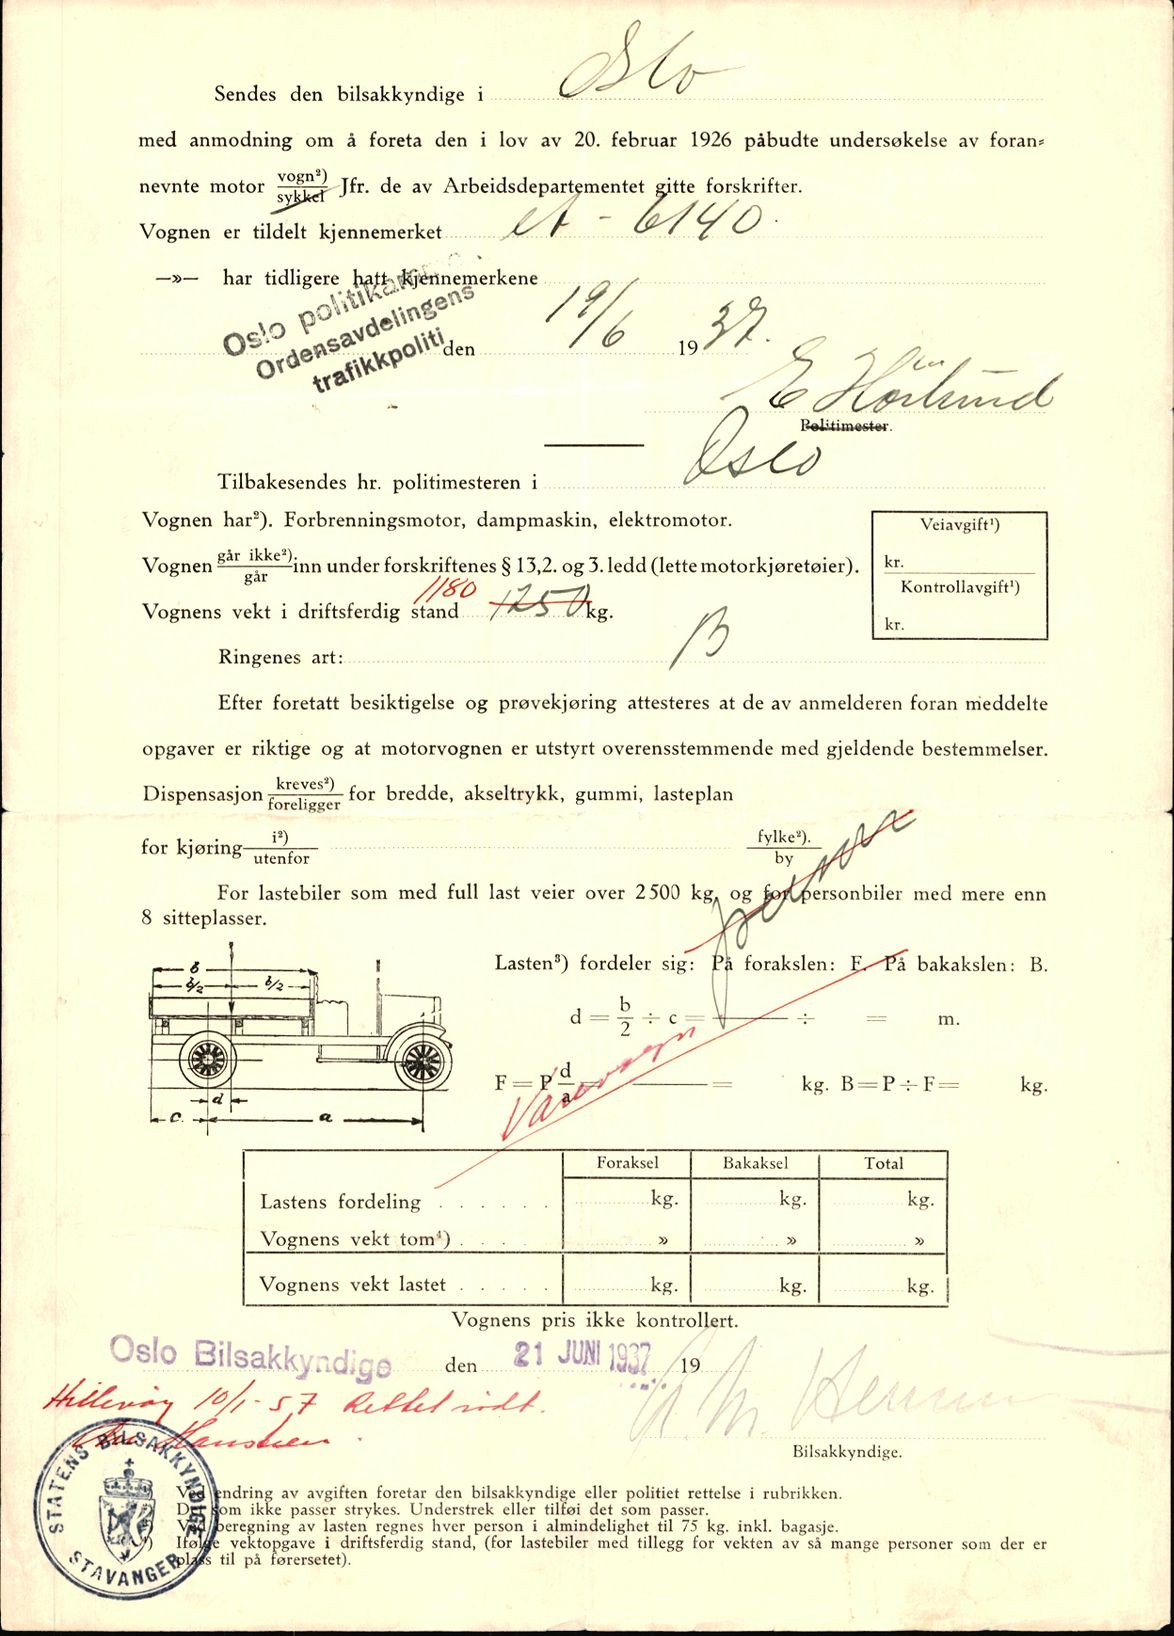 Sendes den bilsakkyndige i Oslo
med anmodning om å foreta den i lov av 20. februar 1926 påbudte undersøkelse av foran-
nevnte motor vogn²)/sykkel Jfr. de av Arbeidsdepartementet gitte forskrifter.
Vognen er tildelt kjennemerket A - 6140.
—»— har tidligere hatt kjennemerkene
Oslo politikam
Ordensavdelingens
trafikkpoliti
den 19/6 1937.
E Hörlund
Politimester.
Tilbakesendes hr. politimesteren i Oslo
Vognen har²). Forbrenningsmotor, dampmaskin, elektromotor.
Vognen går ikke²)/går inn under forskriftenes § 13,2. og 3. ledd (lette motorkjøretøier).
Vognens vekt i driftsferdig stand 1180 1250 kg.
Veiavgift¹)
kr.
Kontrollavgift¹)
kr.
Ringenes art: B
Efter foretatt besiktigelse og prøvekjøring attesteres at de av anmelderen foran meddelte
opgaver er riktige og at motorvognen er utstyrt overensstemmende med gjeldende bestemmelser.
Dispensasjon kreves²)/foreligger for bredde, akseltrykk, gummi, lasteplan
for kjøring i²)/utenfor fylke²)./by
For lastebiler som med full last veier over 2500 kg. og for personbiler med mere enn
8 sitteplasser.
Lasten³) fordeler sig: På forakslen: F. På bakakslen: B.
d = b/2 ÷ c = ÷ = m.
F = P d/a = kg. B = P ÷ F = kg.
Varevogn
b
b/2 b/2
d
c a
Foraksel Bakaksel Total
Lastens fordeling . . . . . . kg. kg. kg.
Vognens vekt tom⁴) . . . . » » »
Vognens vekt lastet . . . . . kg. kg. kg.
Vognens pris ikke kontrollert.
Oslo Bilsakkyndige den 21 JUNI 1937 19
Hillevåg 10/1-57 Rettet rødt.
Bilsakkyndige.
STATENS BILSAKKYNDIGE
STAVANGER
Ved endring av avgiften foretar den bilsakkyndige eller politiet rettelse i rubrikken.
Det som ikke passer strykes. Understrek eller tilføi det som passer.
Ved beregning av lasten regnes hver person i almindelighet til 75 kg. inkl. bagasje.
⁴) Ifølge vektopgave i driftsferdig stand, (for lastebiler med tillegg for vekten av så mange personer som der er
plass til på førersetet).